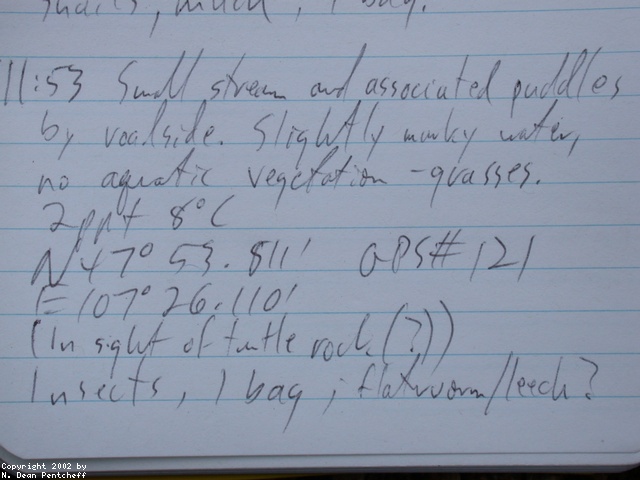 snails, muck, 1 bag.
11:53 Small stream and associated puddles
by roadside. Slightly murky water,
no aquatic vegetation - grasses.
2ppt 8°C
N 47° 53.811' GPS# 121
E 107° 26.110'
(In sight of turtle rock (?))
Insects, 1 bag; flatworm/leech?
Copyright 2002 by
N. Dean Pentcheff